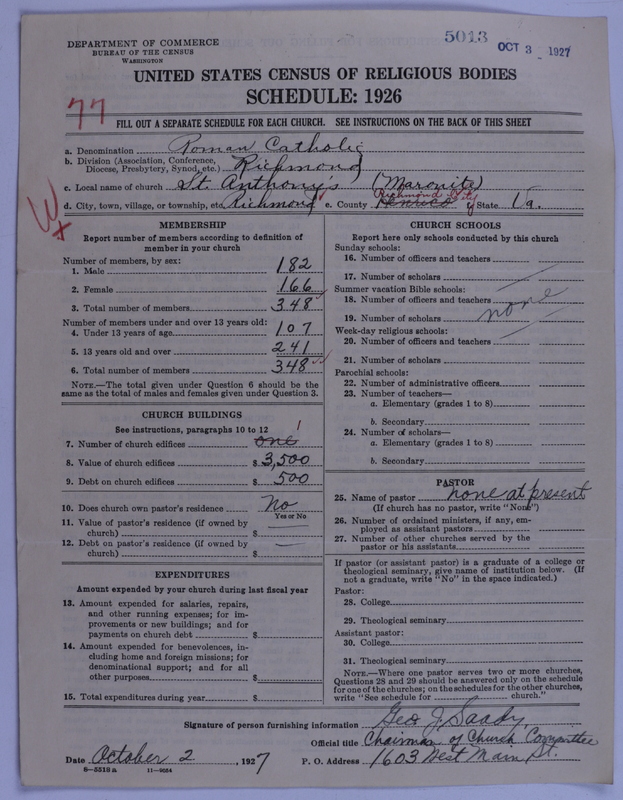 DEPARTMENT OF COMMERCE
BUREAU OF THE CENSUS
WASHINGTON
5013
OCT 3 1927
UNITED STATES CENSUS OF RELIGIOUS BODIES
SCHEDULE: 1926
77
FILL OUT A SEPARATE SCHEDULE FOR EACH CHURCH. SEE INSTRUCTIONS ON THE BACK OF THIS SHEET
a. Denomination Roman Catholic
b. Division (Association, Conference, Diocese, Presbytery, Synod, etc.) Richmond
c. Local name of church St. Anthony's (Maronite)
Richmond City
d. City, town, village, or township, etc. Richmond e. County Henrico State Va.
MEMBERSHIP
Report number of members according to definition of
member in your church
Number of members, by sex:
1. Male 182
2. Female 166
3. Total number of members 348
Number of members under and over 13 years old:
4. Under 13 years of age 107
5. 13 years old and over 241
6. Total number of members 348
NOTE.—The total given under Question 6 should be the
same as the total of males and females given under Question 3.
CHURCH BUILDINGS
See instructions, paragraphs 10 to 12
7. Number of church edifices one 1
8. Value of church edifices $ 3,500
9. Debt on church edifices $ 500
10. Does church own pastor's residence No
Yes or No
11. Value of pastor's residence (if owned by
church) $
12. Debt on pastor's residence (if owned by
church) $
EXPENDITURES
Amount expended by your church during last fiscal year
13. Amount expended for salaries, repairs,
and other running expenses; for im-
provements or new buildings; and for
payments on church debt $
14. Amount expended for benevolences, in-
cluding home and foreign missions; for
denominational support; and for all
other purposes $
15. Total expenditures during year $
CHURCH SCHOOLS
Report here only schools conducted by this church
Sunday schools:
16. Number of officers and teachers
17. Number of scholars
Summer vacation Bible schools:
18. Number of officers and teachers
19. Number of scholars none
Week-day religious schools:
20. Number of officers and teachers
21. Number of scholars
Parochial schools:
22. Number of administrative officers
23. Number of teachers—
a. Elementary (grades 1 to 8)
b. Secondary
24. Number of scholars—
a. Elementary (grades 1 to 8)
b. Secondary
PASTOR
25. Name of pastor none at present
(If church has no pastor, write "None")
26. Number of ordained ministers, if any, em-
ployed as assistant pastors
27. Number of other churches served by the
pastor or his assistants
If pastor (or assistant pastor) is a graduate of a college or
theological seminary, give name of institution below. (If
not a graduate, write "No" in the space indicated.)
Pastor:
28. College
29. Theological seminary
Assistant pastor:
30. College
31. Theological seminary
NOTE.—Where one pastor serves two or more churches,
Questions 28 and 29 should be answered only on the schedule
for one of the churches; on the schedules for the other churches,
write "See schedule for church."
Signature of person furnishing information Geo J. Saady
Official title Chairman of Church Committee
Date October 2, 1927 P. O. Address 1603 West Main St.
6-5518a 11-9034